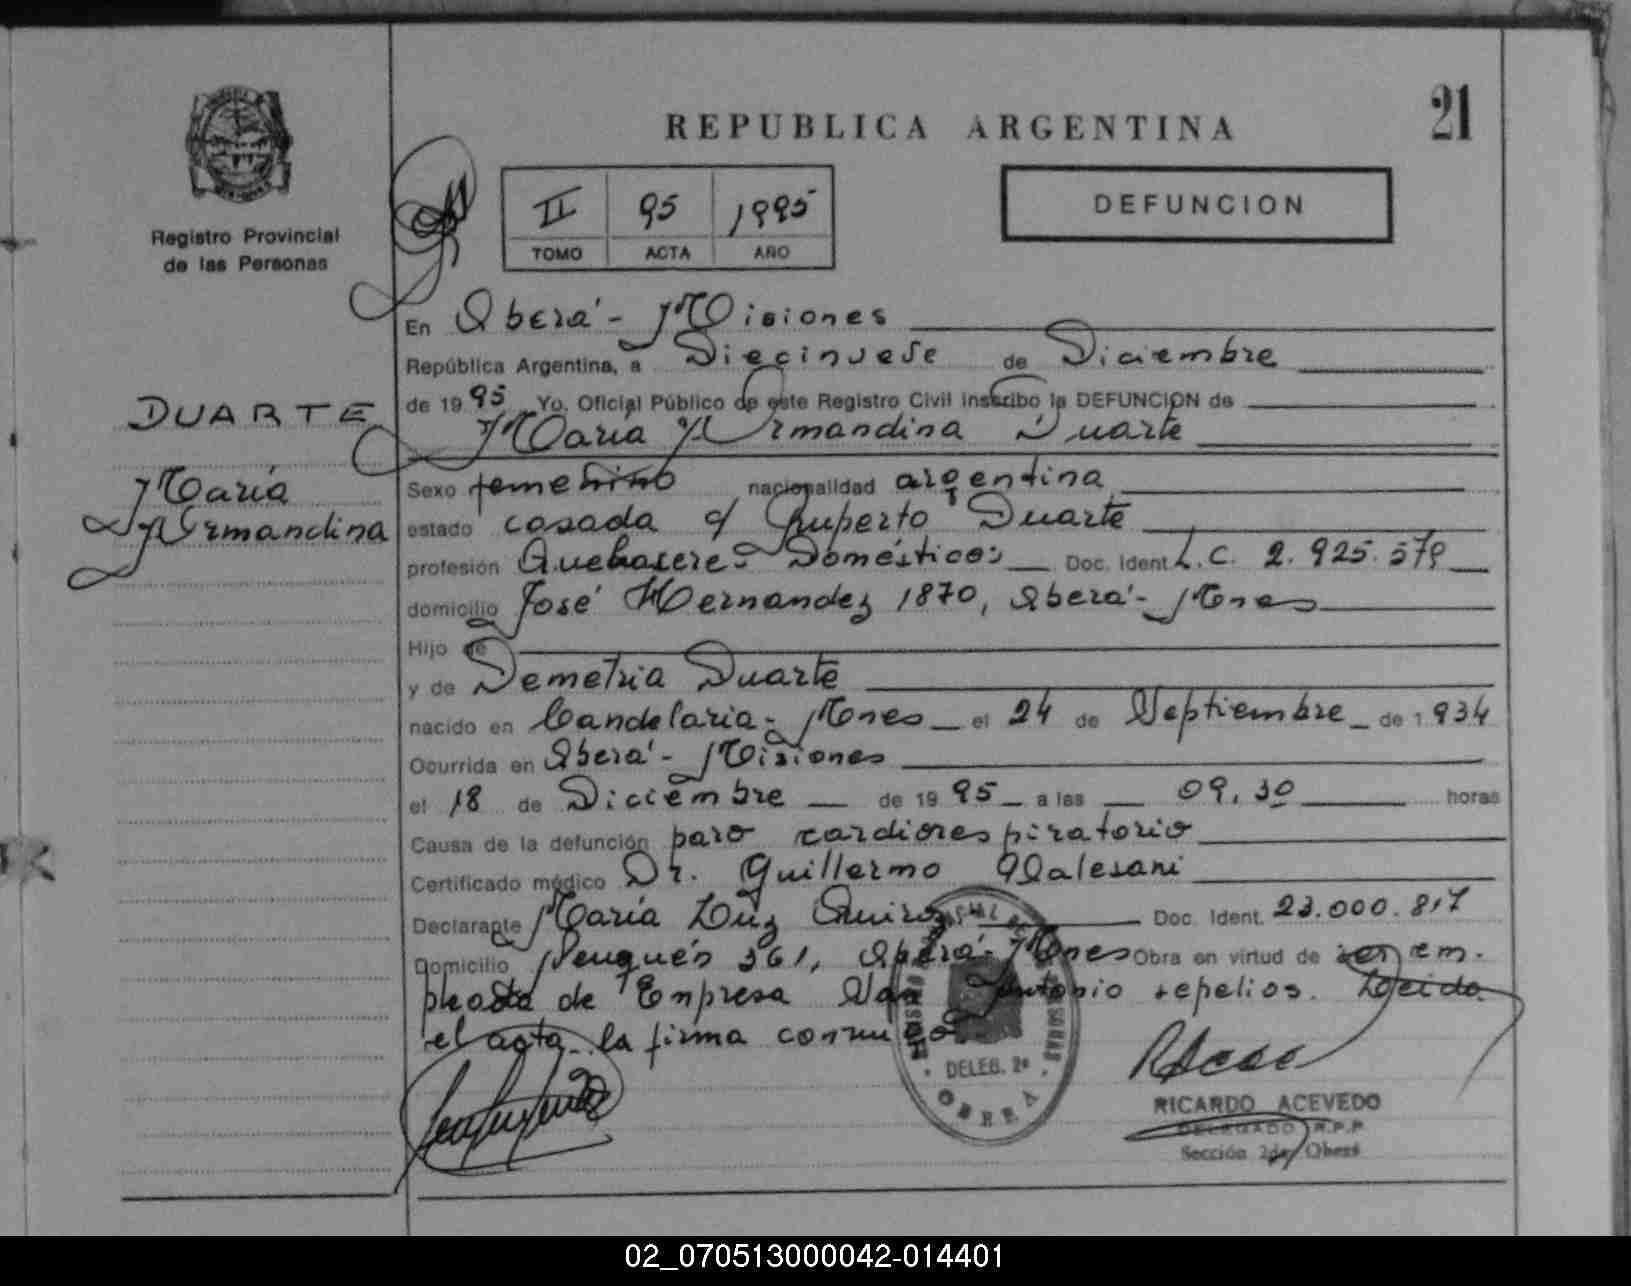 21
REPUBLICA ARGENTINA
Registro Provincial
de las Personas
II 95 1995
TOMO ACTA AÑO
DEFUNCION
DUARTE
María
Armandina
En Oberá - Misiones
República Argentina, a Diecinueve de Diciembre
de 1995 Yo, Oficial Público de este Registro Civil inscribo la DEFUNCION de
María Armandina Duarte
Sexo femenino nacionalidad argentina
estado casada c/ Ruperto Duarte
profesión Quehaceres Domésticos Doc. Ident L.C. 2.925.579
domicilio José Hernandez 1870, Oberá - Mnes
Hijo de
y de Demetria Duarte
nacido en Candelaria - Mnes el 24 de Septiembre de 1934
Ocurrida en Oberá - Misiones
el 18 de Diciembre de 1995 a las 09,30 horas
Causa de la defunción paro cardiorespiratorio
Certificado médico Dr. Guillermo
Declarante María Luz Quiroz Doc. Ident. 23.000.817
Domicilio 361, Oberá - Mnes Obra en virtud de ser em-
pleada de Empresa San Antonio sepelios. Leida
el acta la firma conmigo
DELEG. 2ª
OBERA
RICARDO ACEVEDO
DELEGADO R.P.P.
Sección 2da Oberá
02_070513000042-014401